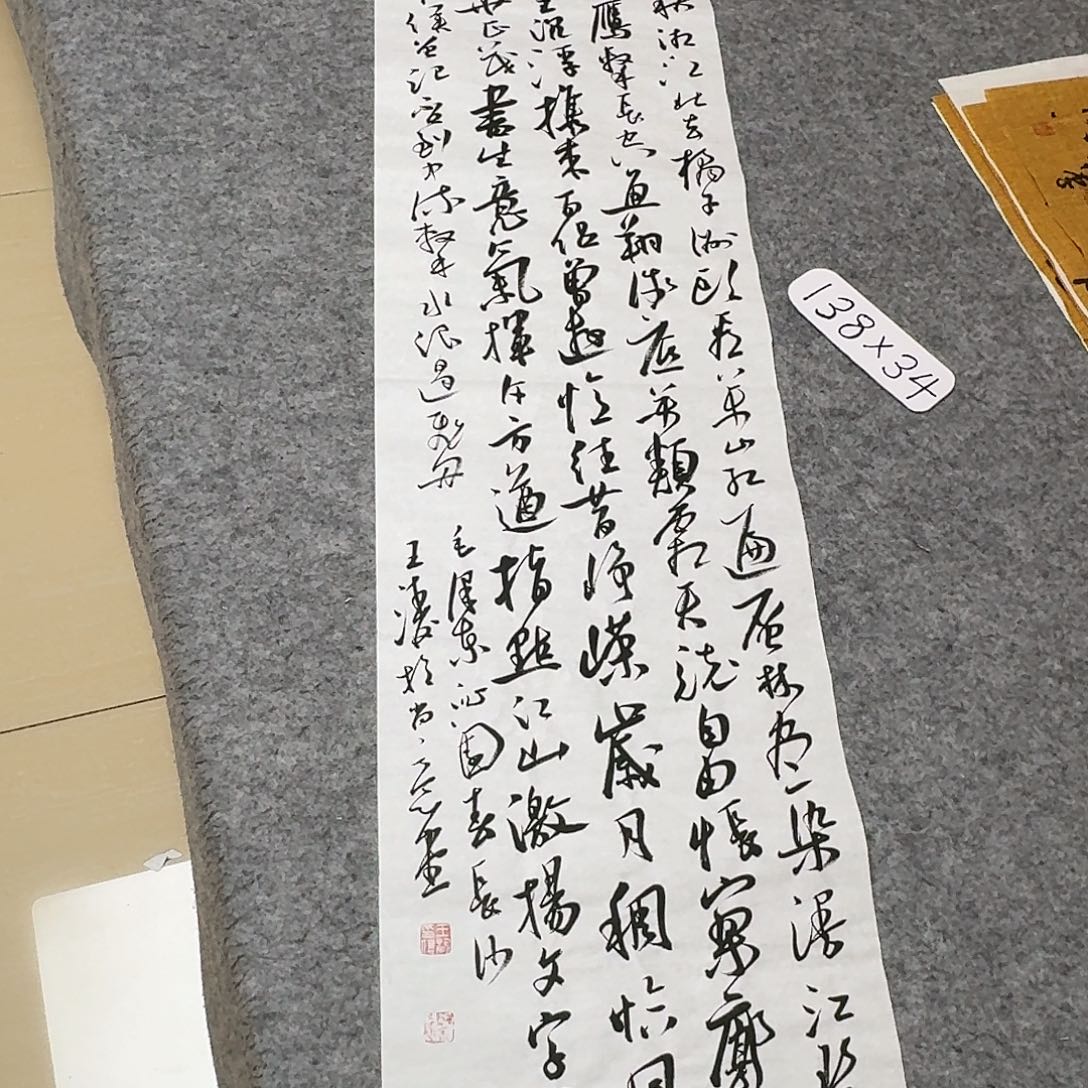 秋湘江北去橘子洲頭看萬山紅遍層林盡染漫江碧
鷹擊長空魚翔淺底萬類霜天競自由悵寥廓
主沉浮攜來百侶曾遊憶往昔崢嶸歲月稠恰同
正茂書生意氣揮斥方遒指點江山激揚文字
侯曾記否到中流擊水浪遏飛舟
毛澤東沁園春長沙
王凌於尚意
138×34